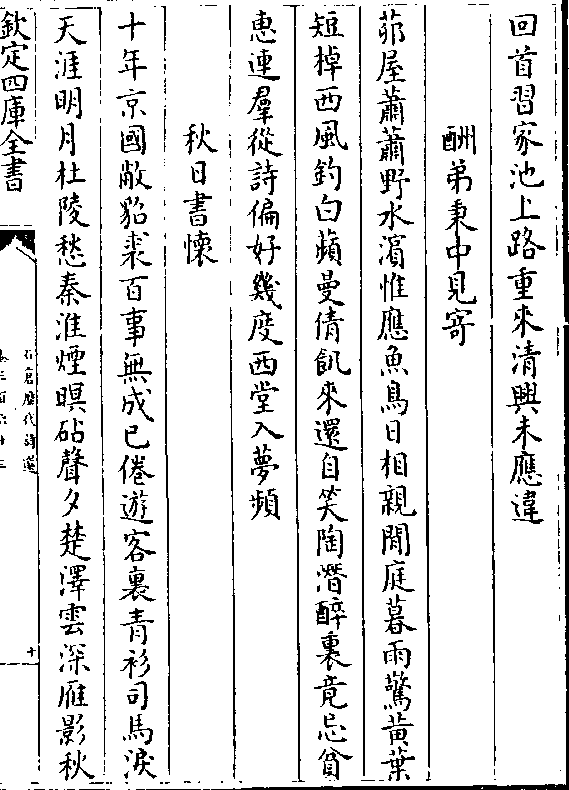 回首習家池上路重來清興未應違
酬弟秉中見寄
茆屋蕭蕭野水濵惟應魚鳥日相親閒庭暮雨驚黃葉
短棹西風釣白蘋曼倩飢來還自笑陶潛醉裏竟忘貧
惠連羣從詩偏好幾度西堂入夢頻
秋日書懷
十年京國敝貂裘百事無成已倦遊客裏青衫司馬淚
天涯明月杜陵愁秦淮煙暝砧聲夕楚澤雲深雁影秋
欽定四庫全書
石倉歷代詩選
卷三百六十三
十